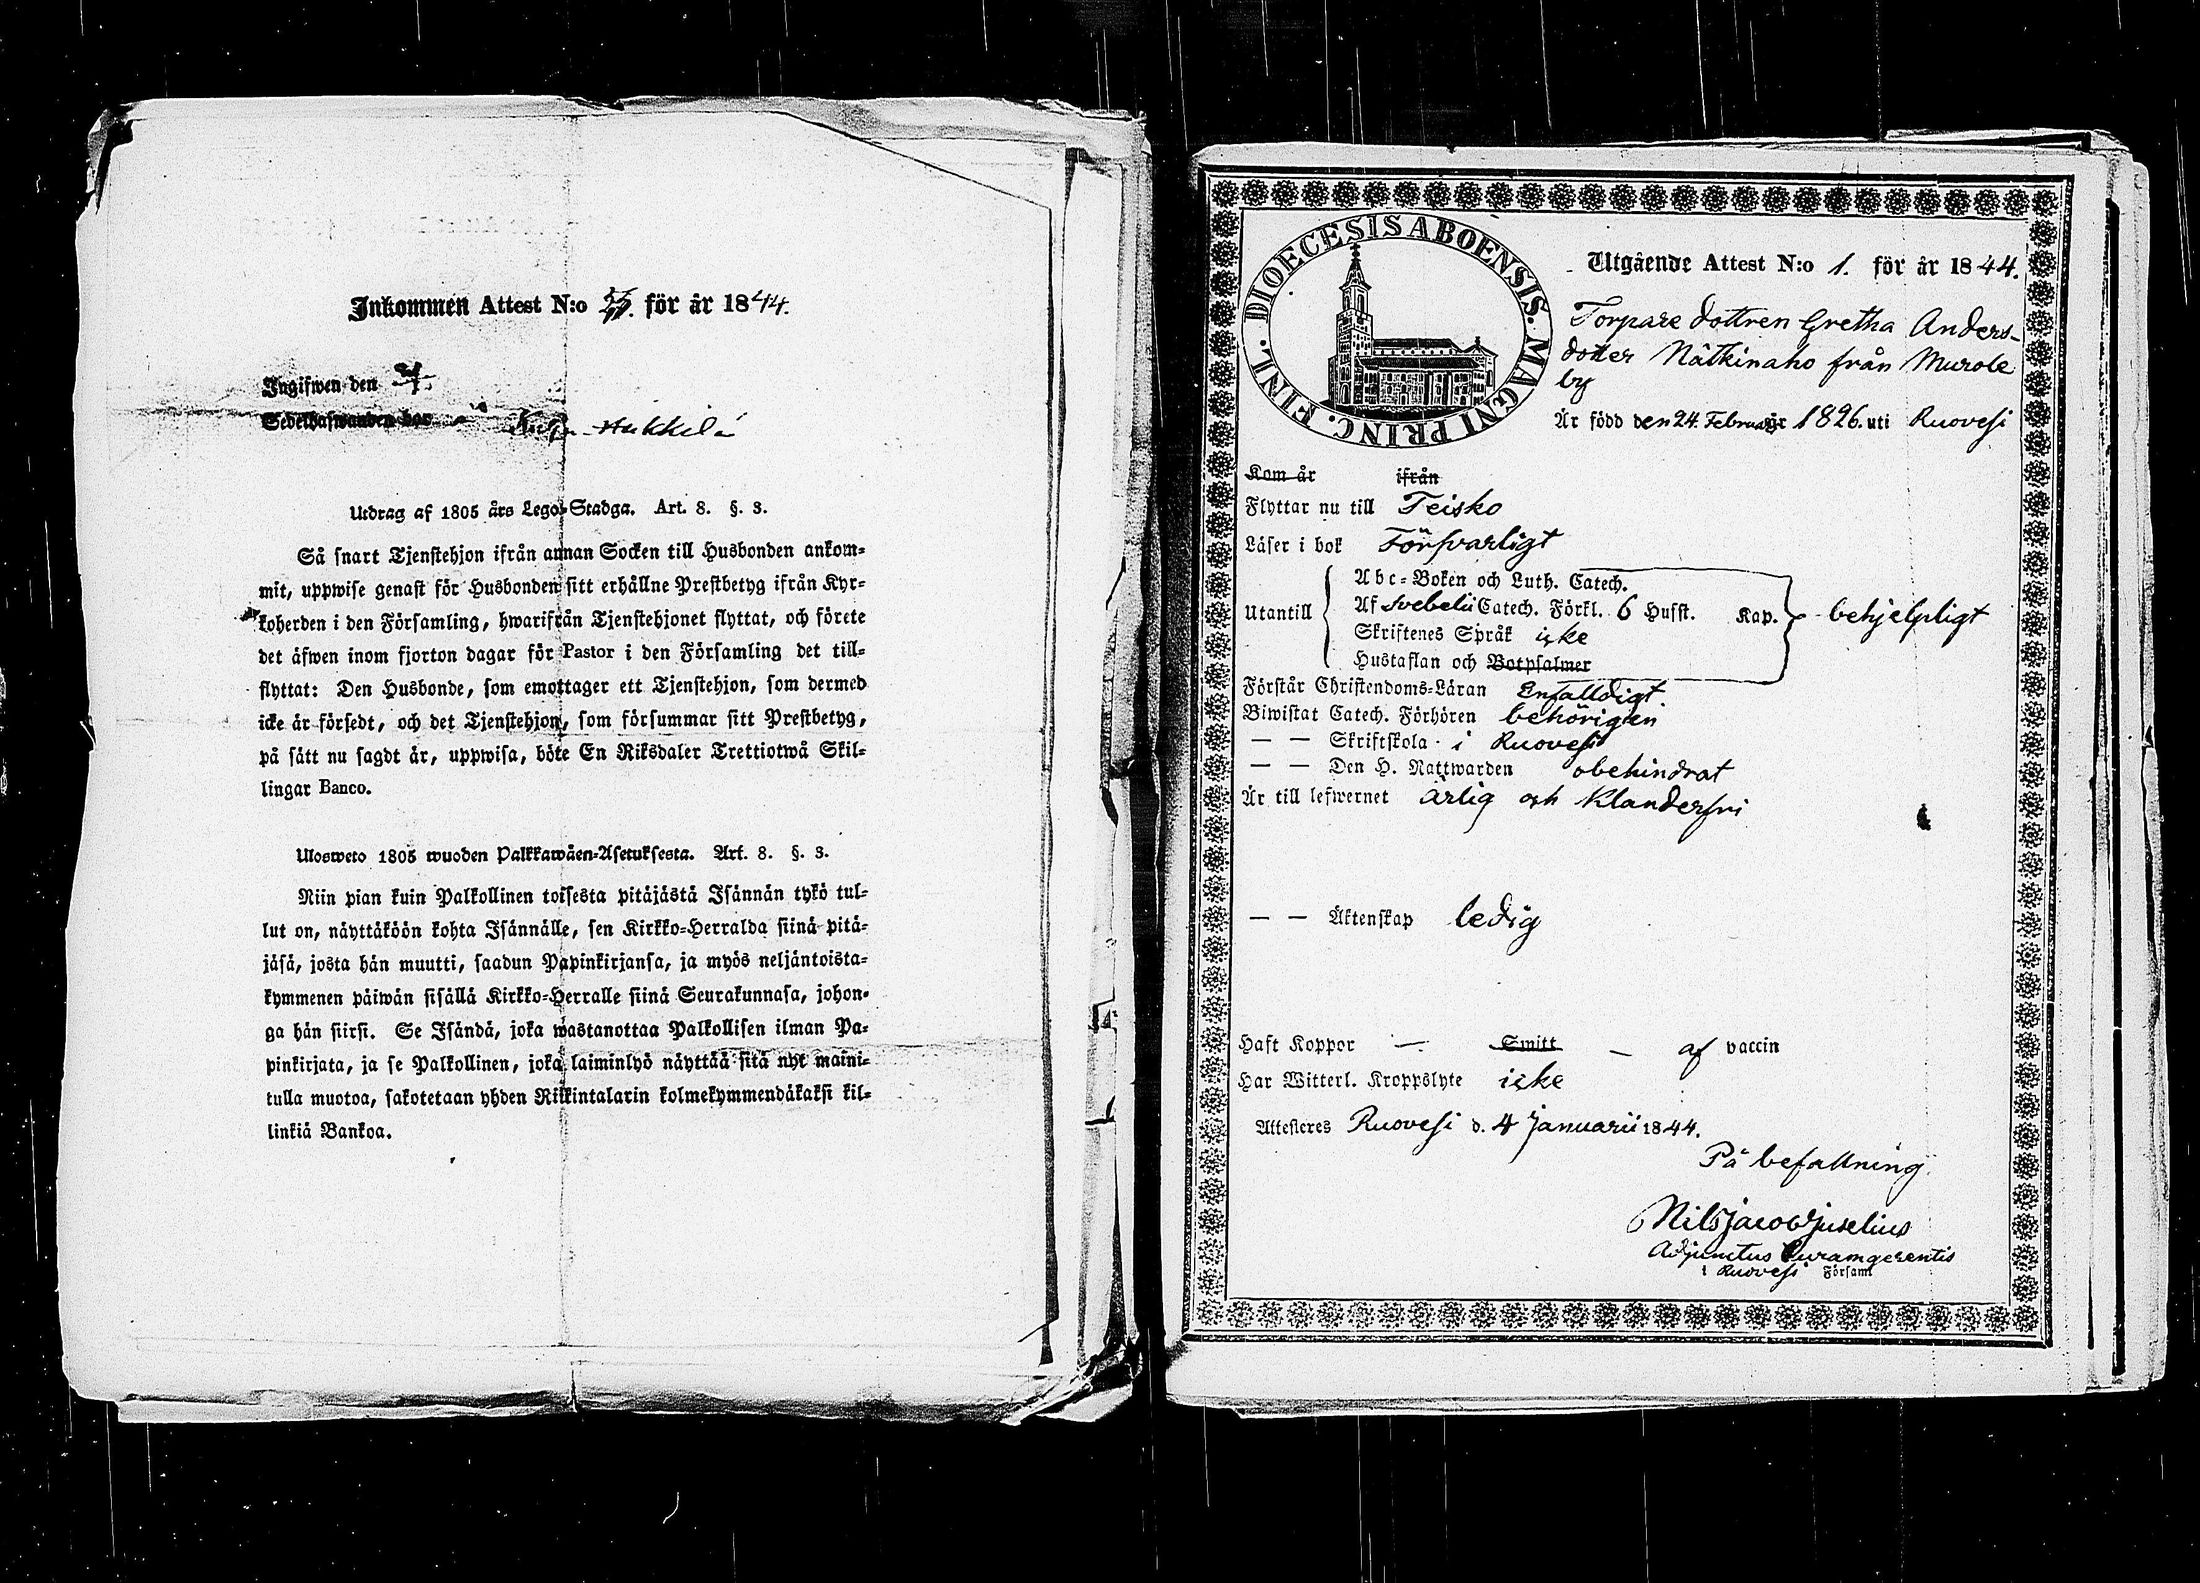 Inkommen Attest N:o för år 1844.
Ingifwen den
Sedelhafwanden bor Hukkila
Utdrag af 1805 års Lego-Stadga. Art. 8. §. 3.
Så snart Tjenstehjon ifrån annan Socken till Husbonden ankom-
mit, uppwise genast för Husbonden sitt erhållne Prestbetyg ifrån Kyr-
koherden i den Församling, hwarifrån Tjenstehjonet flyttat, och förete
det äfwen inom fjorton dagar för Pastor i den Församling det till-
flyttat: Den Husbonde, som emottager ett Tjenstehjon, som dermed
icke är försedt, och det Tjenstehjon, som försummar sitt Prestbetyg,
på sätt nu sagdt är, uppwisa, böte En Riksdaler Trettiotwå Skil-
lingar Banco.
Ulosweto 1805 wuoden Palkkawäen-Asetuksesta. Art. 8. §. 3.
Niin pian kuin Palkollinen toisesta pitäjästä Isännän tykö tul-
lut on, näyttäköön kohta Isännälle, sen Kirkko-Herralda siinä pitä-
jäsä, josta hän muutti, saadun Papinkirjansa, ja myös neljäntoista-
kymmenen päiwän sisällä Kirkko-Herralle siinä Seurakunnasa, johon-
ga hän siirsi. Se Isändä, joka wastanottaa Palkollisen ilman Pa-
pinkirjata, ja se Palkollinen, joka laiminlyö näyttää sitä nyt maini-
tulla muotoa, sakotetaan yhden Riikintalarin kolmekymmendäkaksi kil-
linkiä Bankoa.
DIOECESIS ABOENSIS. MAGNI PRINC. FINL.
Utgående Attest N:o 1. för år 1844.
Torpare dottren Gretha Anders-
dotter Nätkinaho från Murole
by
Är född den 24. Februarii 1826. uti Ruovesi
Kom år ifrån
Flyttar nu till Teisko
Läser i bok Försvarligt
Abc-Boken och Luth. Catech.
Utantill Af Svebelii Catech. Förkl. 6 Hufst. Kap. behjelpligt
Skriftenes Språk icke
Hustaflan och Botpsalmer
Förstår Christendoms-Läran Enfalldigt.
Biwistat Catech. Förhören behörigen
— — Skriftskola i Ruovesi
— — Den H. Nattwarden obehindrat
Är till lefwernet ärlig och klanderfri
— — Äktenskap ledig
Haft Koppor — Smitt — af vaccin
Har Witterl. Kroppslyte icke
Attesteres Ruovesi d. 4 Januarii 1844.
På befallning
Nils Jacob Juselius
Adjunctus Curamgerentis
i Ruovesi Församl